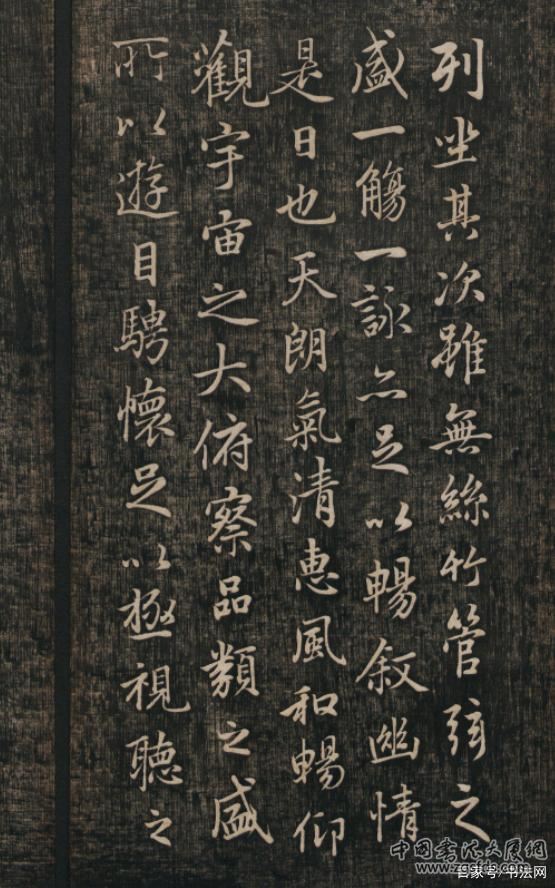 列坐其次雖無絲竹管弦之
盛一觴一詠亦足以暢叙幽情
是日也天朗氣清惠風和暢仰
觀宇宙之大俯察品類之盛
所以遊目騁懷足以極視聽之
中國書法大廈網
www.zgsfds.com
百家号/书法网